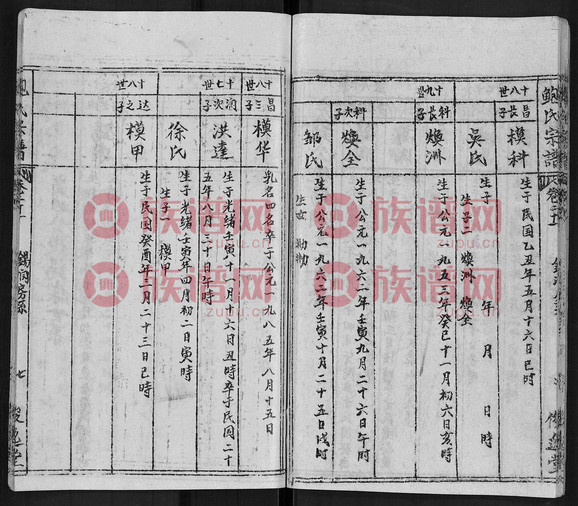 鲍氏宗譜
卷二十
十八世
昌長子
模科
生于民国乙丑年五月十六日巳時
吳氏
生于 年 月 日 時
生子二 煥洲 煥全
十九世
科長子
煥洲
生于公元一九五三年癸巳十一月初六日亥時
科次子
煥全
生于公元一九六二年壬寅九月二十六日午时
邹氏
生于公元一九六二年壬寅十月二十五日戌時
生女
十八世
昌三子
模华
乳名四名卒于公元一九八五年八月十五日
十七世
润次子
洪達
生于光緒壬寅十一月十六日丑時卒于民囯二十五年八月三十日午時
徐氏
生于光緒壬寅年四月初二日寅時
生子一 模甲
十八世
达之子
模甲
生于民国癸酉年二月二十三日巳時
鲍氏宗譜
七
族谱网
www.zupu.cn
族谱网
www.zupu.cn
族谱网
www.zupu.cn
族谱网
www.zupu.cn